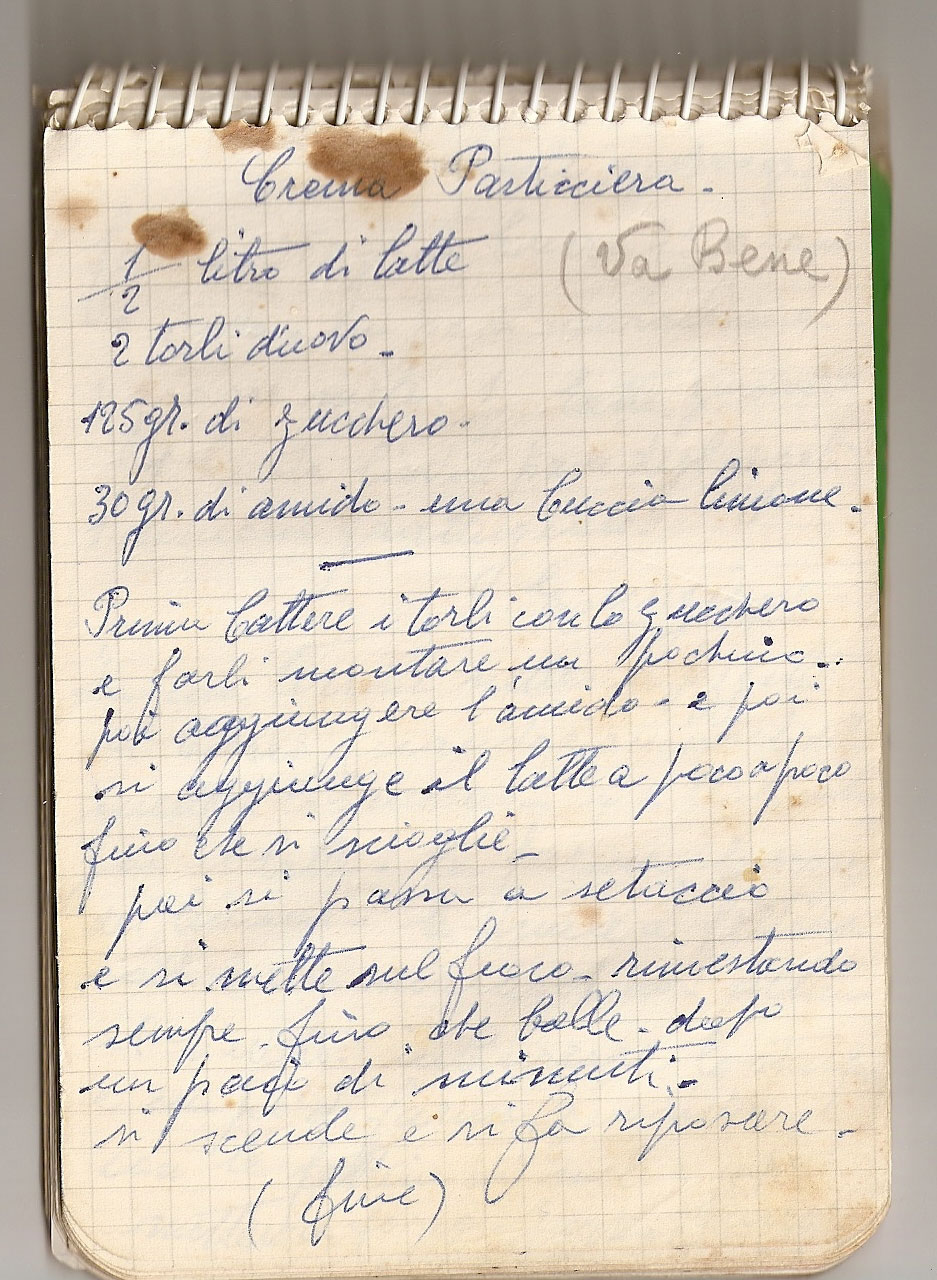 Crema Pasticciera -
1/2 litro di latte (Va Bene)
2 torli d'uovo -
125 gr. di zucchero -
30 gr. di amido - una buccia limone.
Prima battere i torli con lo zucchero
e farli montare un pochino..
poi aggiungere l'amido - e poi
si aggiunge il latte a poco a poco
fino che si scioglie -
poi si passa a setaccio
e si mette sul fuoco - rimestando
sempre fino che bolle - dopo
un pai di minuti -
si scende e si fa riposare -
(fine)